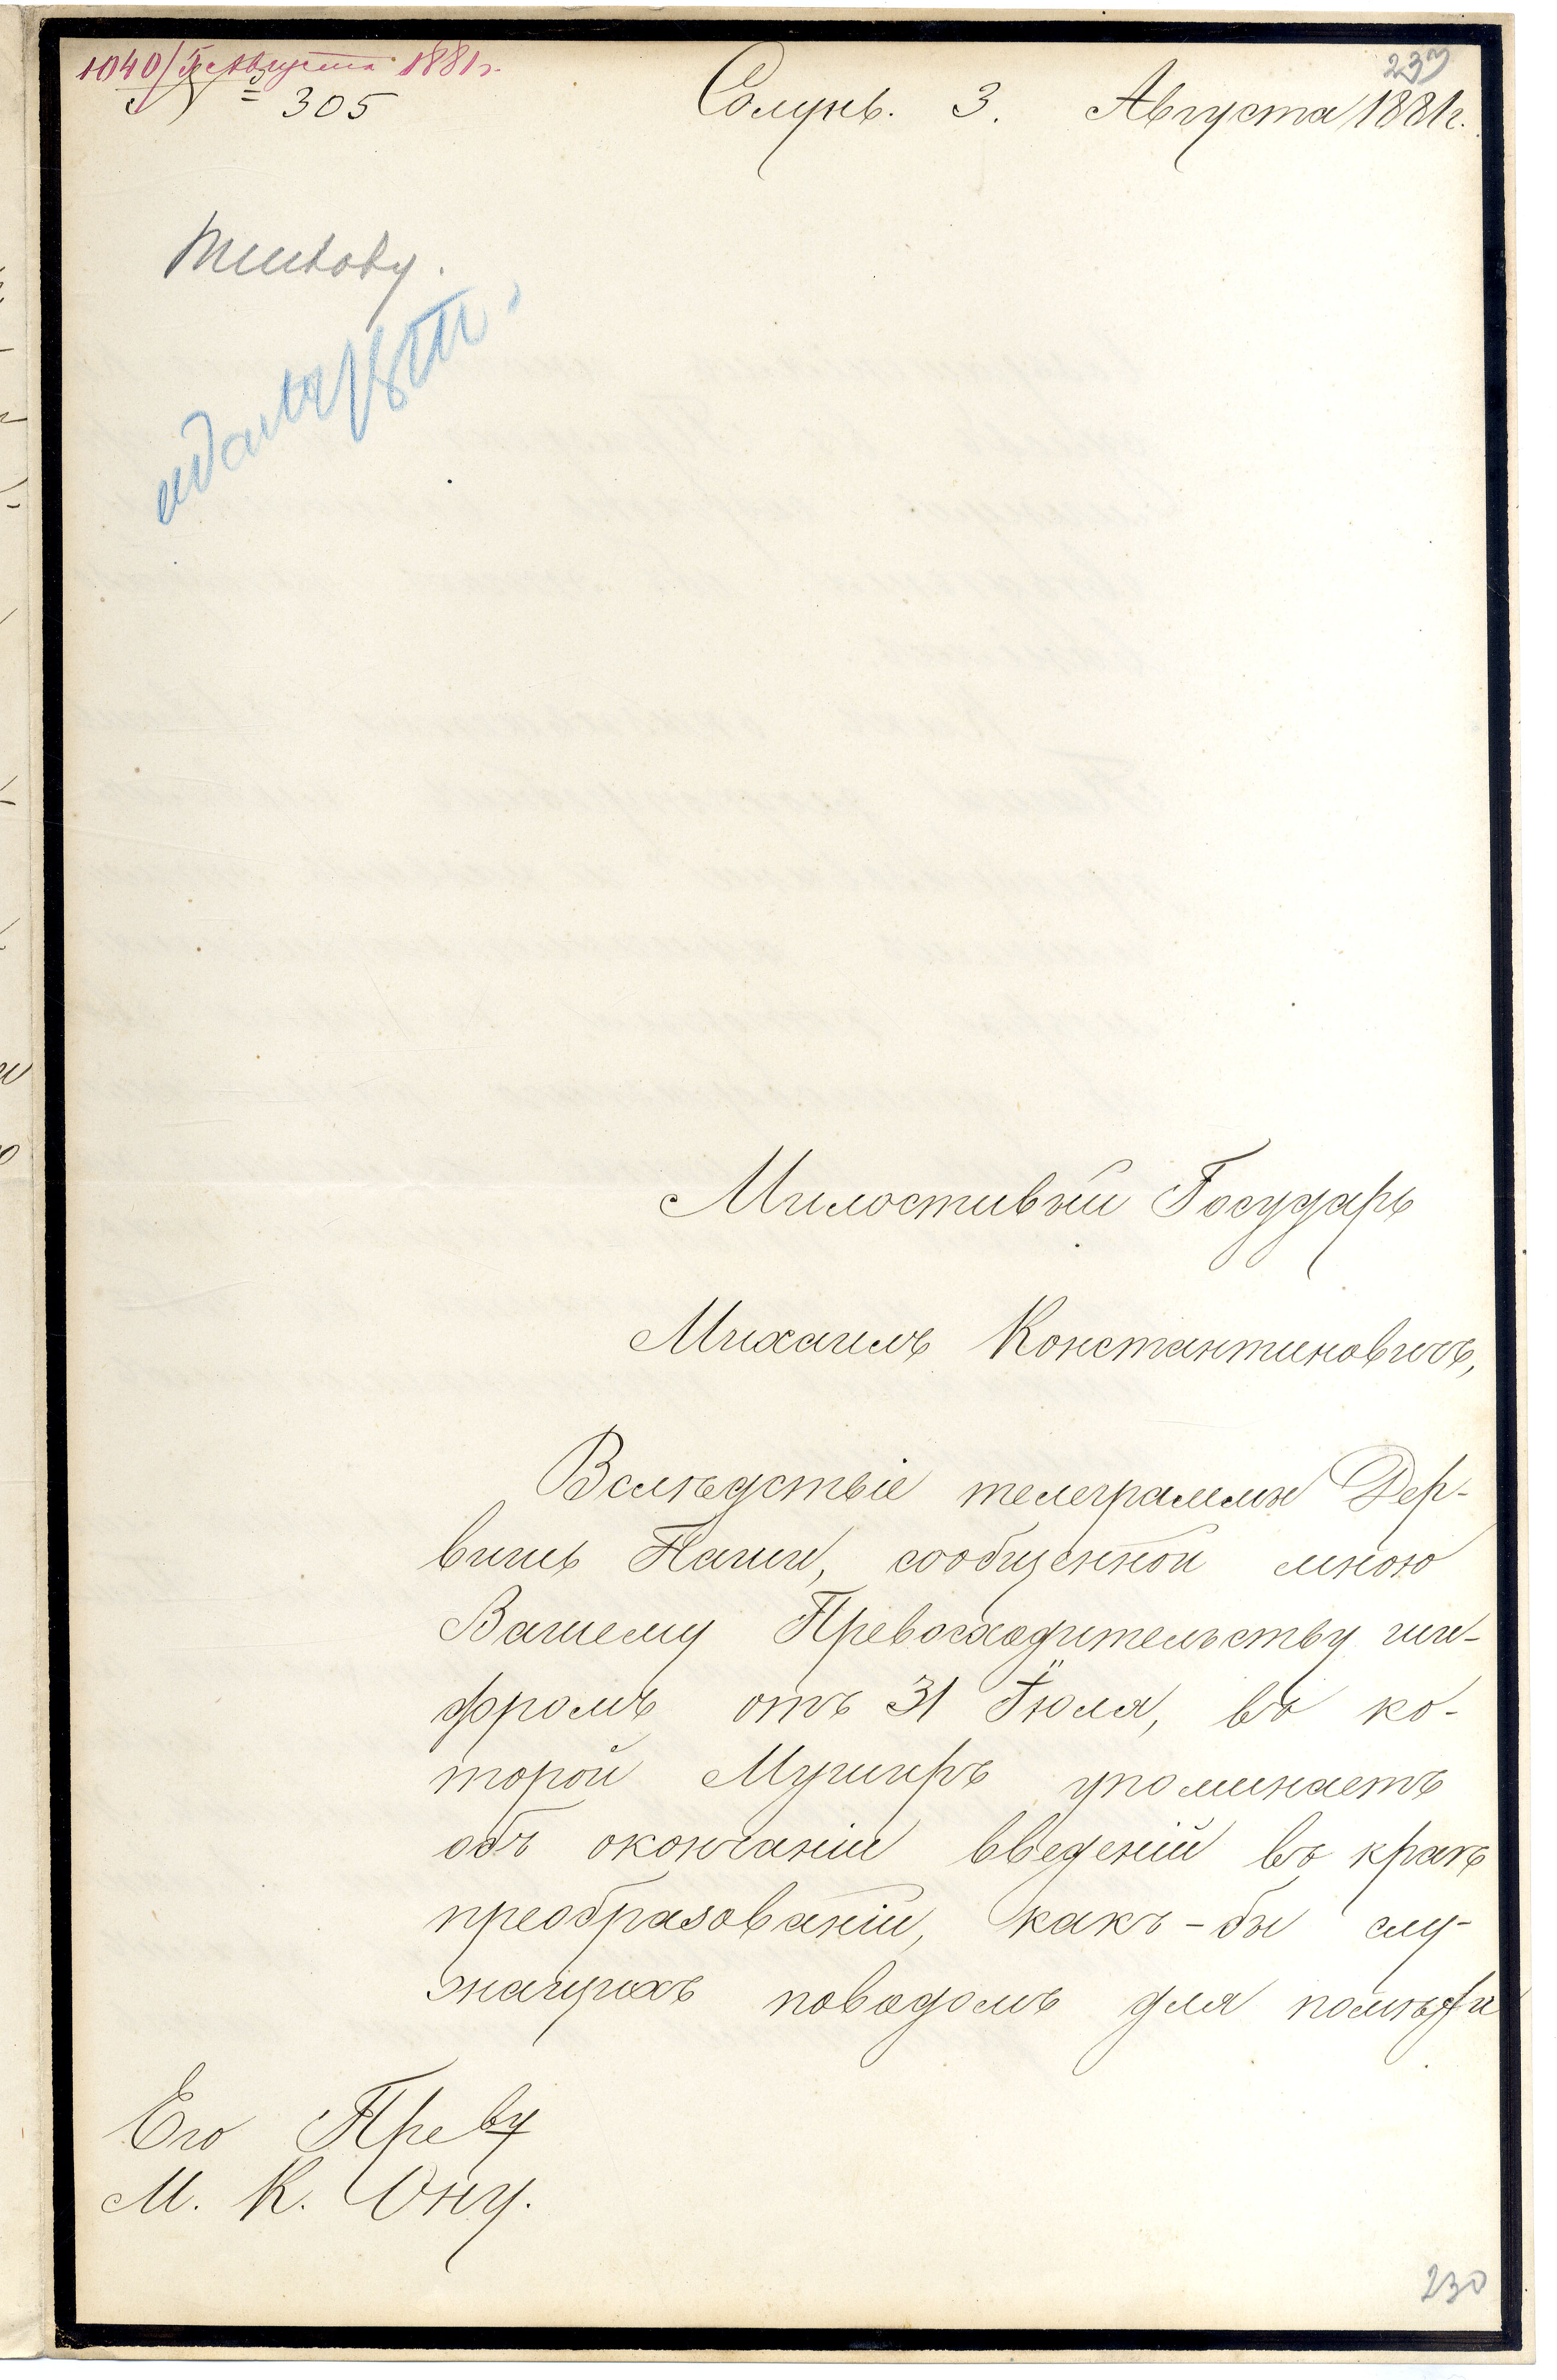 1040/5 Августа 1881 г.
№ 305
Солунь. 3. Августа 1881 г.
233
Милостивый Государь
Михаилъ Константиновичъ,
Вслѣдствіе телеграммы Дер-
вишъ Паши, сообщенной мною
Вашему Превосходительству ши-
фромъ отъ 31 Іюля, въ ко-
торой Муширъ упоминаетъ
объ окончаніи введеній въ краѣ
преобразованій, какъ-бы слу-
жащихъ поводомъ для
Его Пре-ву
М. К. Ону.
230